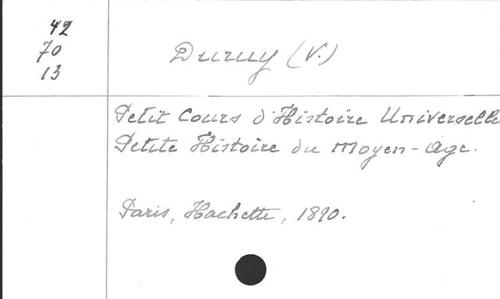 42
70
13
Duruy (V.)
Petit Cours d'Histoire Universelle
Petite Histoire du Moyen-Age.
Paris, Hachette, 1890.